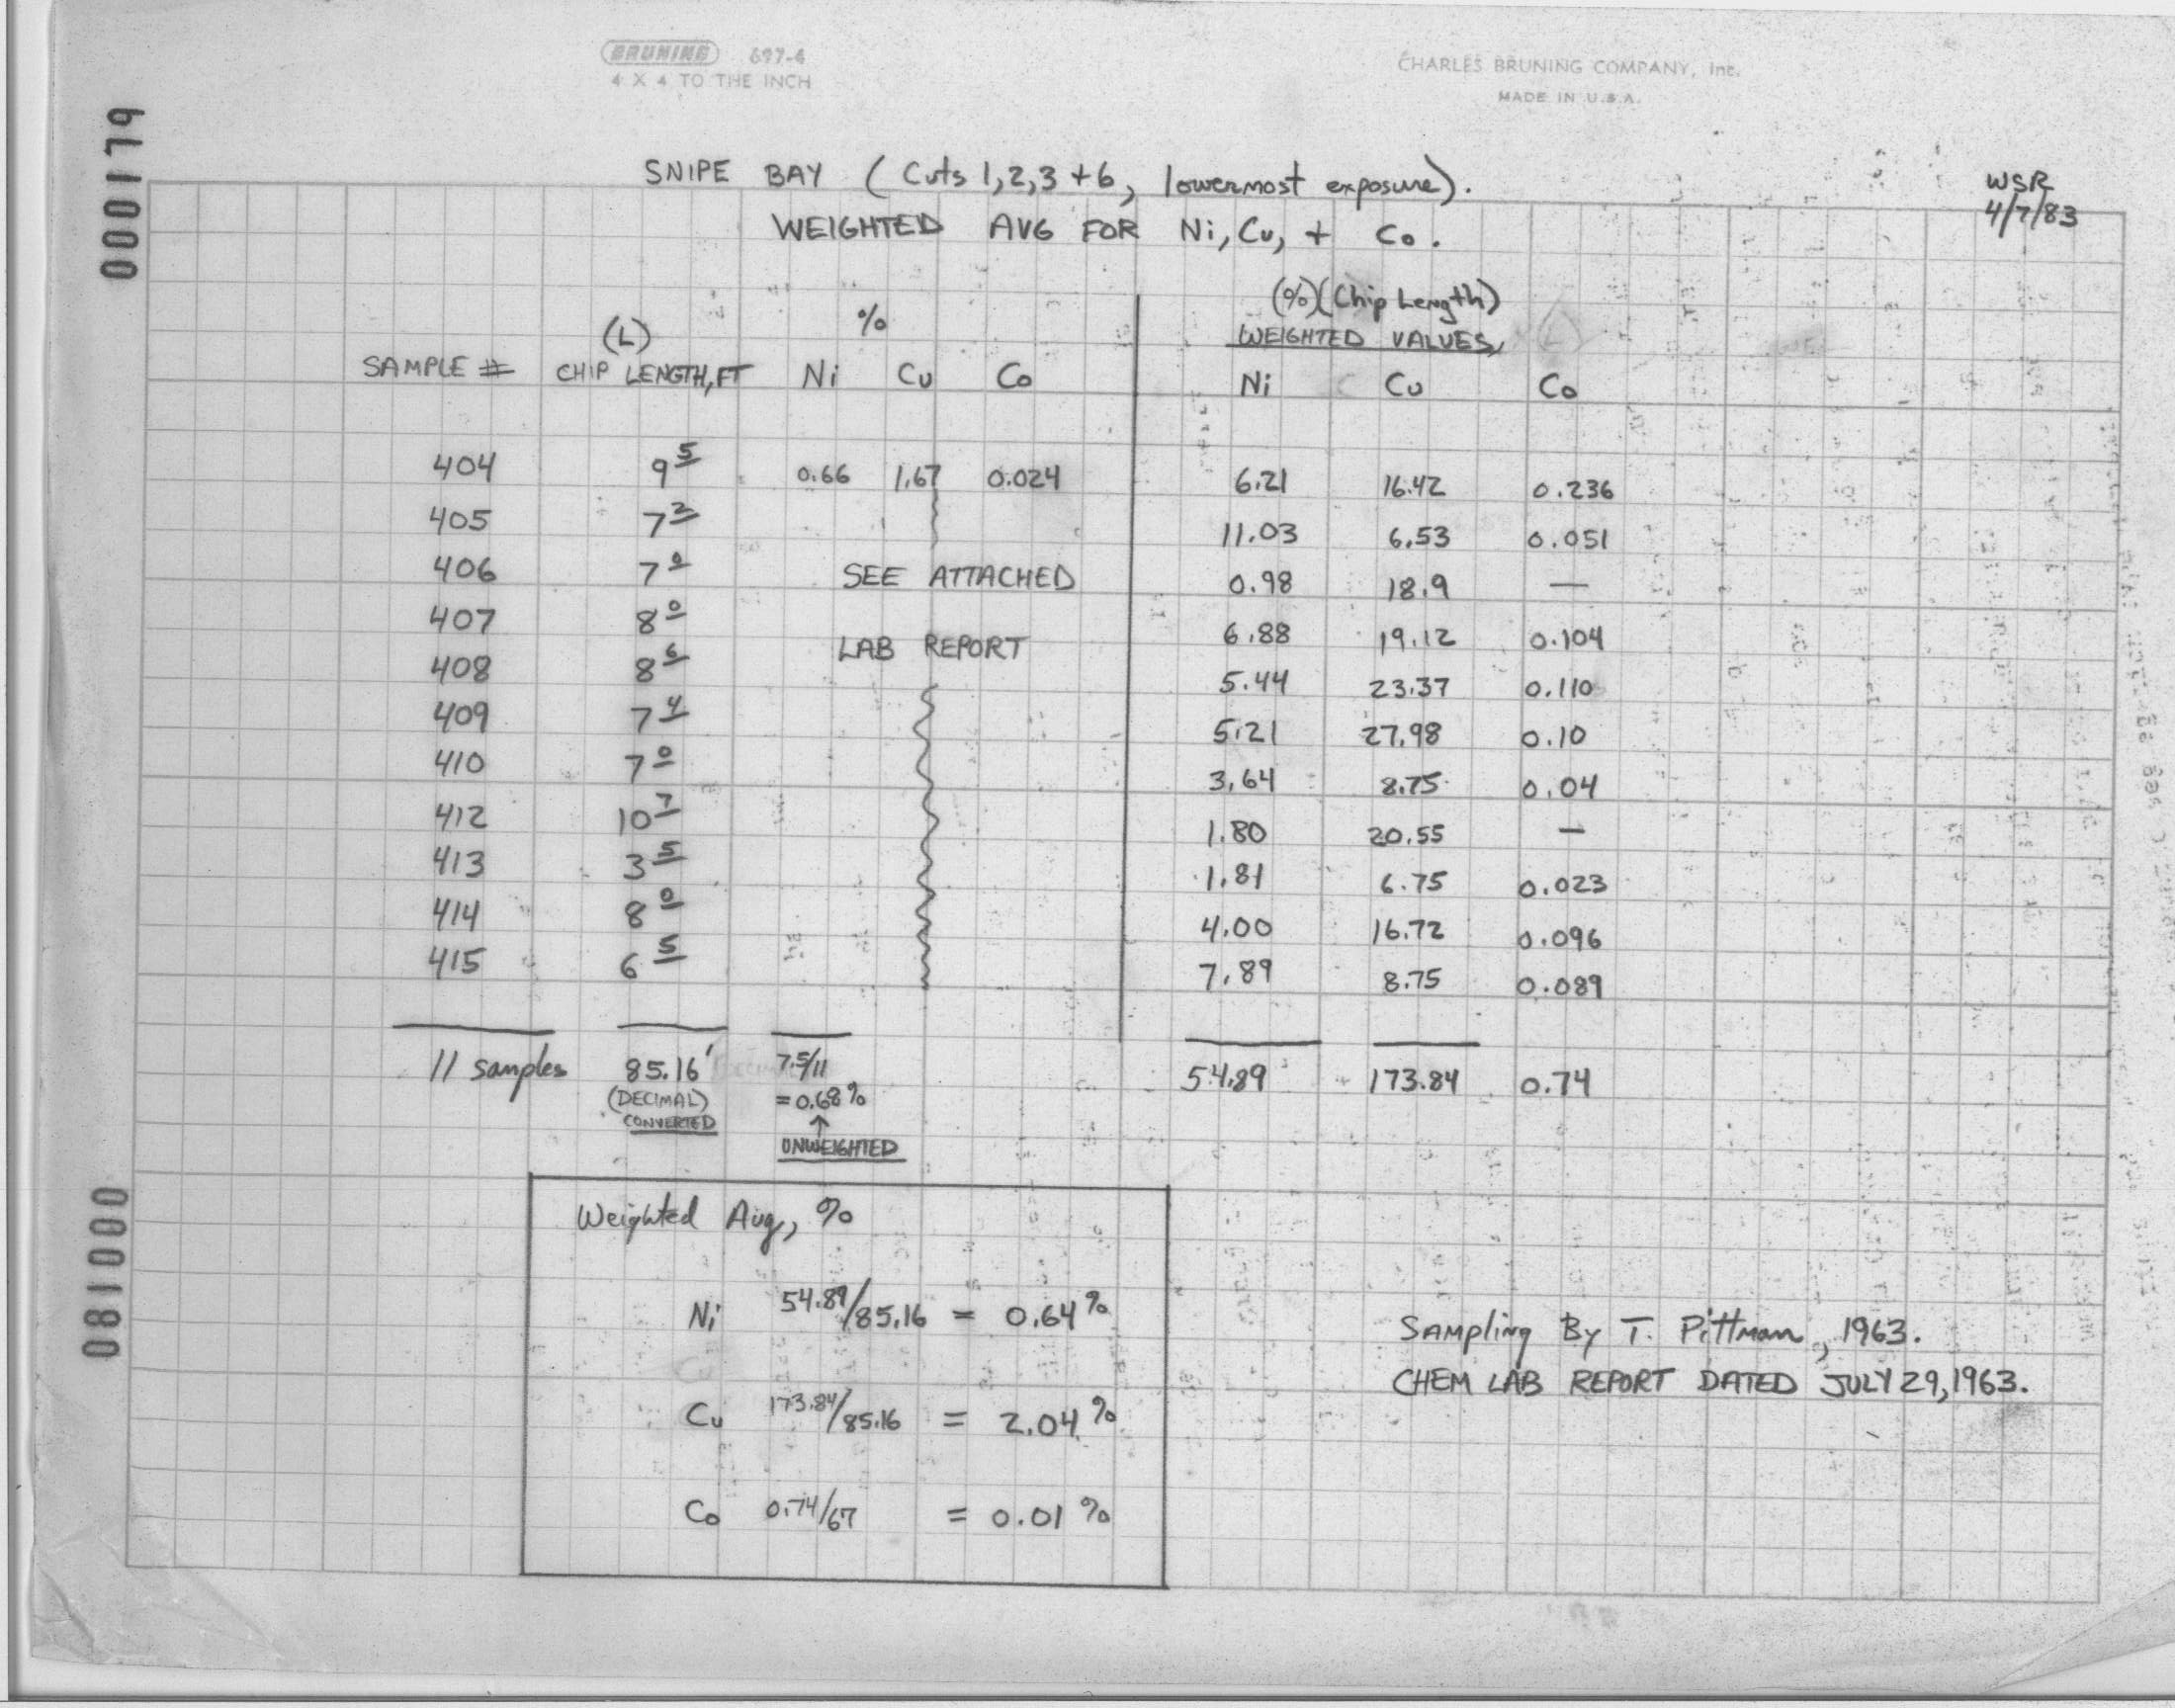 BRUNING 697-4
4 X 4 TO THE INCH
CHARLES BRUNING COMPANY, Inc.
MADE IN U.S.A.
000179
SNIPE BAY (Cuts 1,2,3 + 6, lowermost exposure).
WSR
4/7/83
WEIGHTED AVG FOR Ni, Cu, + Co.
(%)(Chip Length)
(L) %
WEIGHTED VALUES,
SAMPLE # CHIP LENGTH, FT Ni Cu Co Ni Cu Co
404 9 5 0.66 1.67 0.024 6.21 16.42 0.236
405 7 2 11.03 6.53 0.051
406 7 0 SEE ATTACHED 0.98 18.9 —
407 8 0 LAB REPORT 6.88 19.12 0.104
408 8 6 5.44 23.37 0.110
409 7 4 5.21 27.98 0.10
410 7 0 3.64 8.75 0.04
412 10 7 1.80 20.55 —
413 3 5 1.81 6.75 0.023
414 8 0 4.00 16.72 0.096
415 6 5 7.89 8.75 0.089
11 samples 85.16' 7.5/11 54.89 173.84 0.74
(DECIMAL) = 0.68%
CONVERTED ↑
UNWEIGHTED
000180
Weighted Avg, %
Ni 54.89/85.16 = 0.64%
Cu 173.84/85.16 = 2.04%
Co 0.74/67 = 0.01%
Sampling By T. Pittman, 1963.
CHEM LAB REPORT DATED JULY 29, 1963.